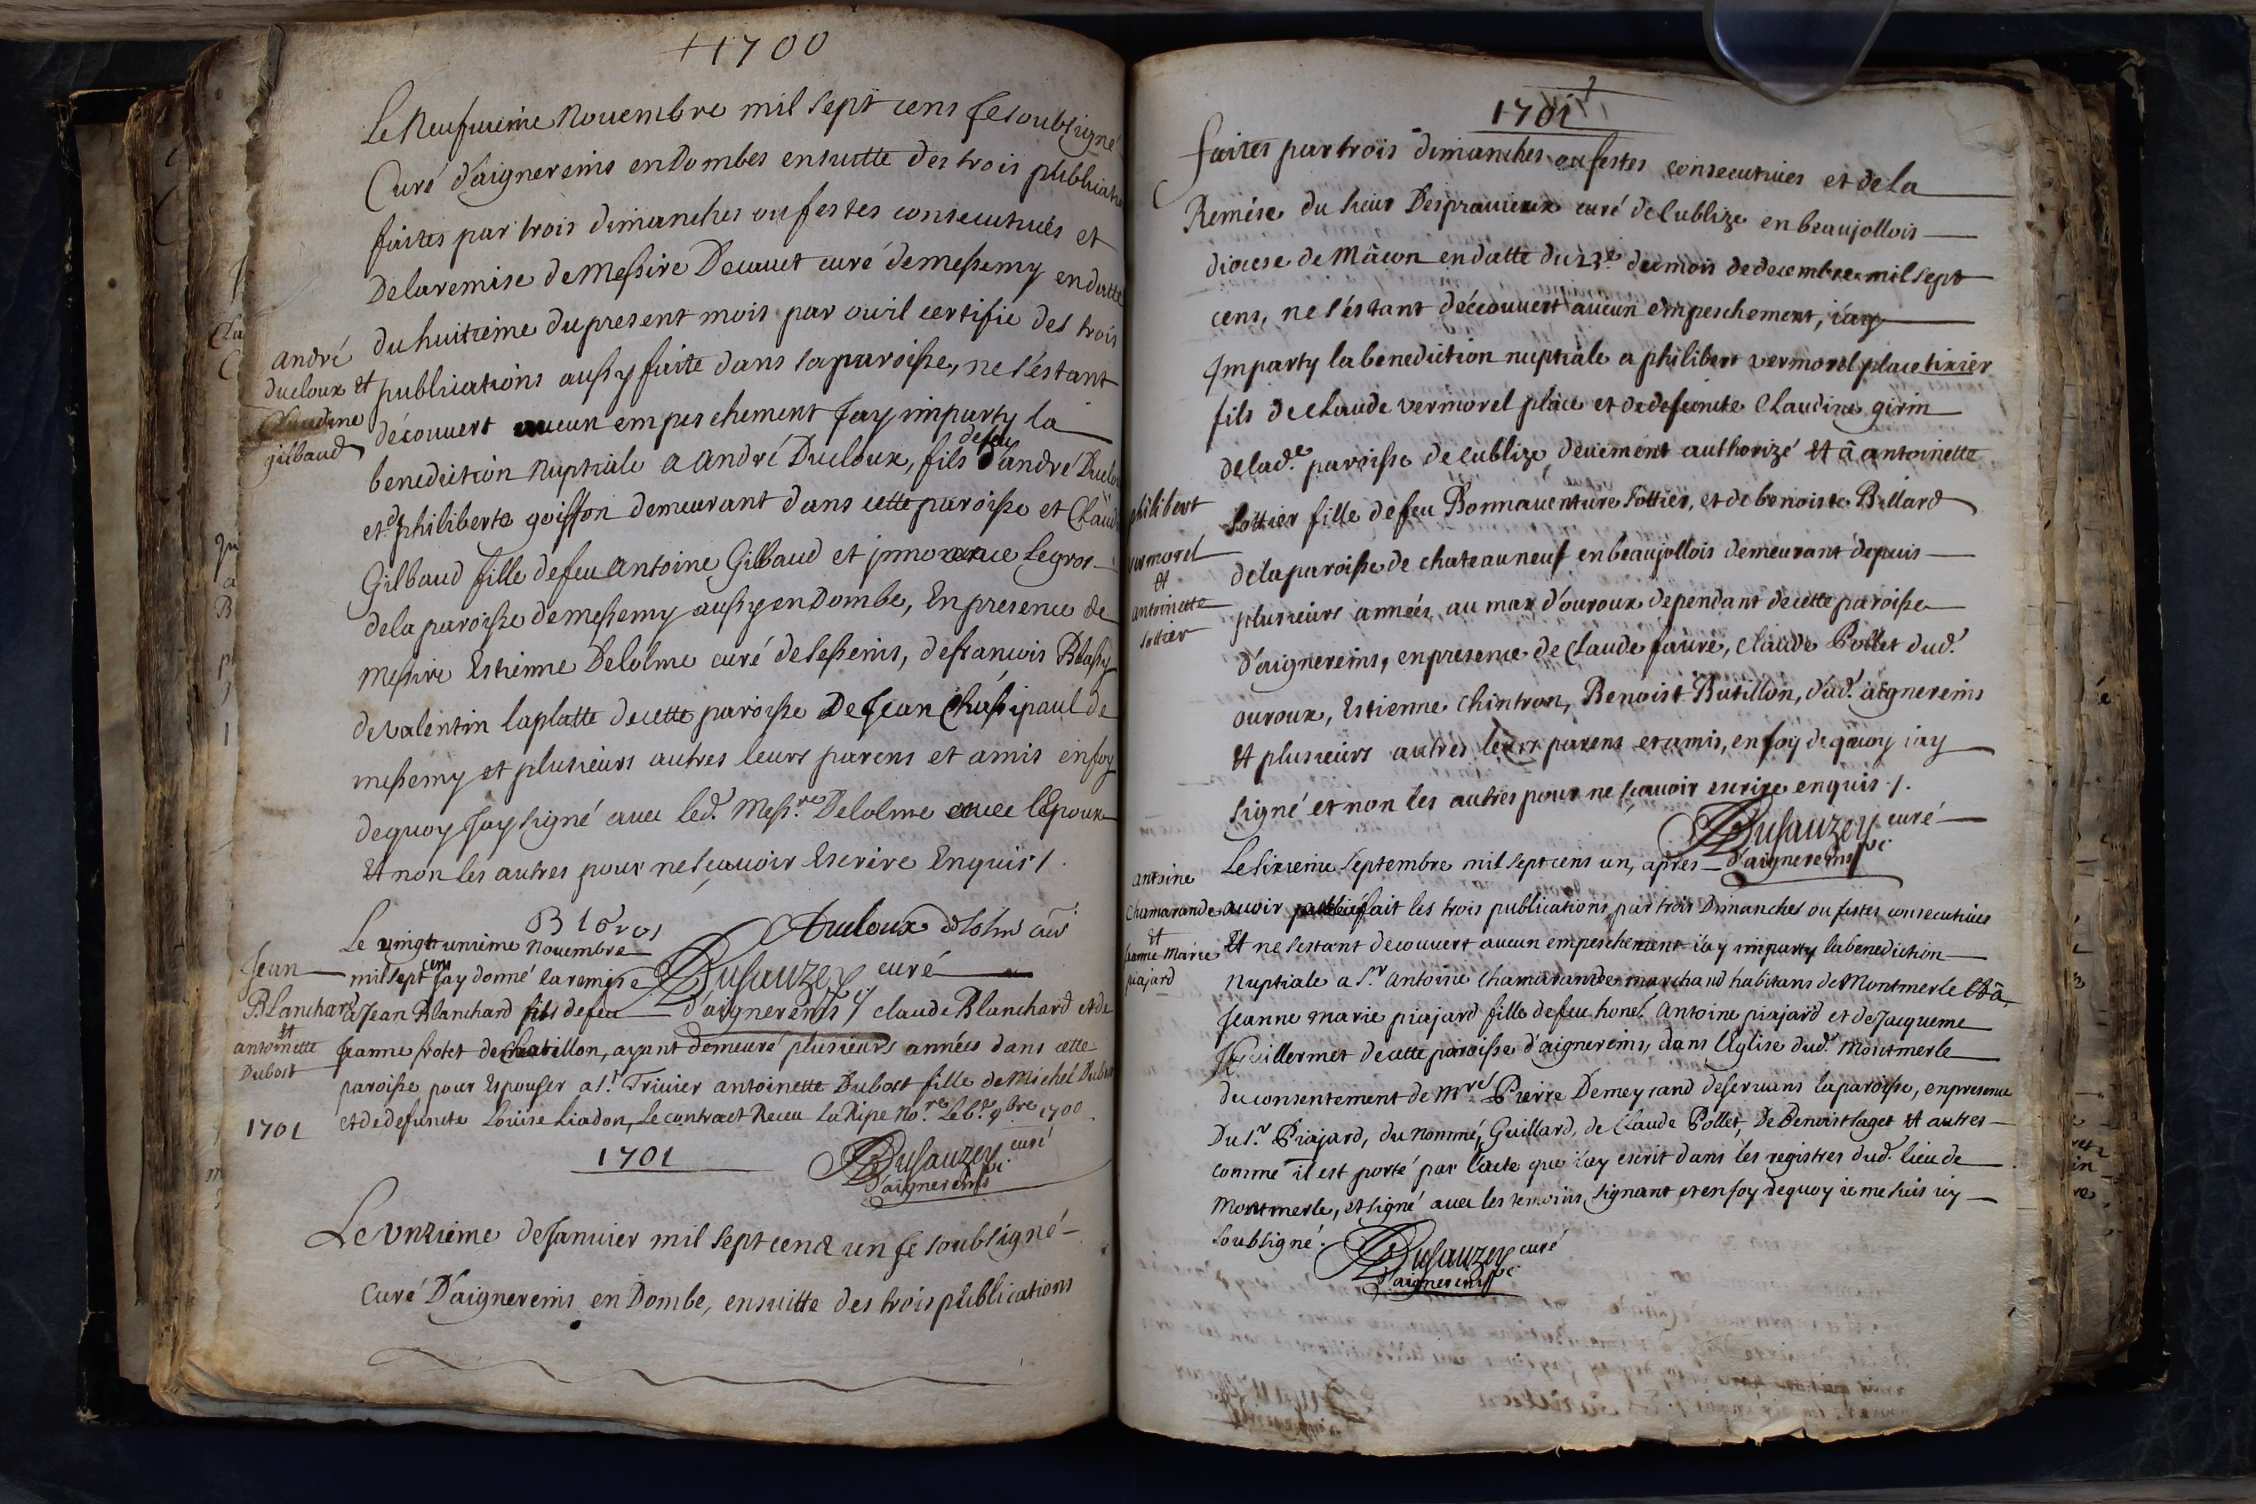 +1700
Le Neufuieme Nouembre mil sept cens Je soubsigné
Curé d'aignereins en Dombes ensuitte des trois publicatio
faites par trois dimanches ou festes consecutiues et
De la remise de Messire Decauet curé de messemy en datte
du huitieme du present mois par ou il certifie des trois
andré
ducloux et
Claudine
gilbaud
publications aussy faite dans sa paroisse, ne s'estant
découuert aucun empeschement Jay imparty la
benediction Nuptiale a André Ducloux, fils defeu andré Duclou
et de philiberte goiffon demeurant dans cette paroisse et Claudi
Gilbaud fille defeu Antoine Gilbaud et Legros
de la paroisse de messemy aussy en Dombe, En presence de
Messire Estienne Delolme curé de Lessins, de francois Blassy
de valentin laplatte de cette paroisse De Jean Chassipaul de
messemy et plusieurs autres leurs parens et amis en foy
de quoy Jay signé auec led. Messre. Delolme auec lEpoux
Et non les autres pour ne scauoir Escrire Enquis /.
Ducloux
Dusauzey curé
d'aignereins
Jean
Blanchard
et
antoinette
Dubost
Le vingt unieme Nouembre
mil sept cens Jay donné la remise
a Jean Blanchard fils defeu claude Blanchard et de
Jeanne frotet de Chatillon, ayant demeuré plusieurs années dans cette
paroisse pour Espouser a St. Triuier antoinette Dubost fille de Michel Dubost
et de defuncte Louise Liadon, Le contract Receu La Ripe Nore. Le 6e 9bre 1700.
1701
1701
Dusauzey curé
d'aignereins
Le Vnzieme de Januier mil sept cens un Je soubsigné
Curé D'aignereins en Dombe, ensuitte des trois publications
1701
faites par trois dimanches ou festes consecutiues et de la
Remise du sieur Despraueaux curé de Cublize en beaujollois
diocese de Mâcon en datte du 23e du mois de decembre mil sept
cens, ne s'éstant découuert aucun empeschement, i'ay
Imparty la benediction nuptiale a philibert vermorel place tixier
fils de claude vermorel place et de defuncte Claudine girin
de lade. paroisse de cublize, deuement authorizé Et â antoinette
philibert
vermorel
et
antoinette
sottier
sottier fille defeu Bonnauenture Sottier, et de benoiste Billard
de la paroisse de chateauneuf en beaujollois demeurant depuis
plusieurs années, au max d'ouroux dependant de cette paroisse
d'aignereins, en presence de Claude faure, Claude Pollet dud.
ouroux, Estienne Chintron, Benoist Butillon, dud. aignereins
Et plusieurs autres leurs parens et amis, en foy de quoy iay
signé et non les autres pour ne scauoir escrire enquis /.
Dusauzey curé
d'aignereins
antoine
Chamarande
et
Jeanne Marie
piajard
Le sixieme Septembre mil sept cens un, apres
auoir fait les trois publications par trois Dimanches ou festes consecutiues
Et ne s'estant decouuert aucun empeschement i'ay imparty la benediction
Nuptiale a Sr. Antoine Chamarande marchand habitans de Montmerle Et â
Jeanne marie piajard fille defeu honet. Antoine piajard et de Jacqueme
Guillermet de cette paroisse d'aignereins, dans l'Eglise dud. Montmerle
du consentement de Mre Pierre Demeyrand deseruans la paroisse, en presence
Du Sr. Piajard, du Nommé Guillard, de Claude Pollet, De Benoist Saget Et autres
comme il est porté par l'acte que i'ay escrit dans les registres dud. lieu de
Montmerle, et signé auec les temoins signant et en foy de quoy ie me suis icy
soubsigné.
Dusauzey curé
d'aignereins